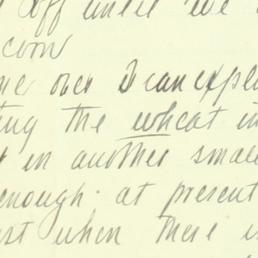 off until we
corn
me over I can expla
ting the wheat in
in another smalle
enough. at present
when there is